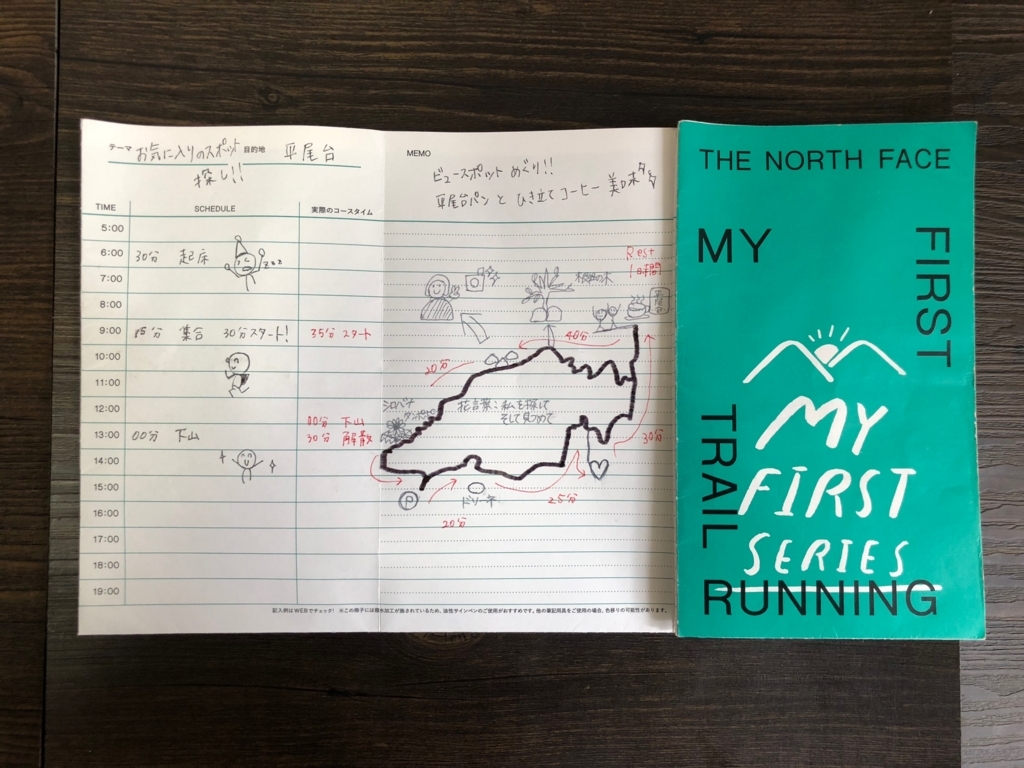 テーマ お気に入りのスポット 目的地 平尾台
探し!!
TIME SCHEDULE 実際のコースタイム
5:00
6:00 30分 起床 zzz
7:00
8:00
9:00 15分 集合 30分スタート! 35分 スタート
10:00
11:00
12:00
00分 下山
13:00 00分 下山 30分 解散
14:00
15:00
16:00
17:00
18:00
19:00
MEMO
ビュースポット めぐり!!
平尾台パンと ひき立てコーヒー 美味
Rest
1時間
40分
20分
シロバナ
タンポポ
花言葉:私を探して
そして見つめて
30分
P
ドリーネ
25分
20分
記入例はWEBでチェック! ※この冊子には撥水加工が施されているため、油性サインペンのご使用がおすすめです。他の筆記用具をご使用の場合、色移りの可能性があります。
THE NORTH FACE
MY
FIRST
TRAIL
RUNNING
MY
FIRST
SERIES